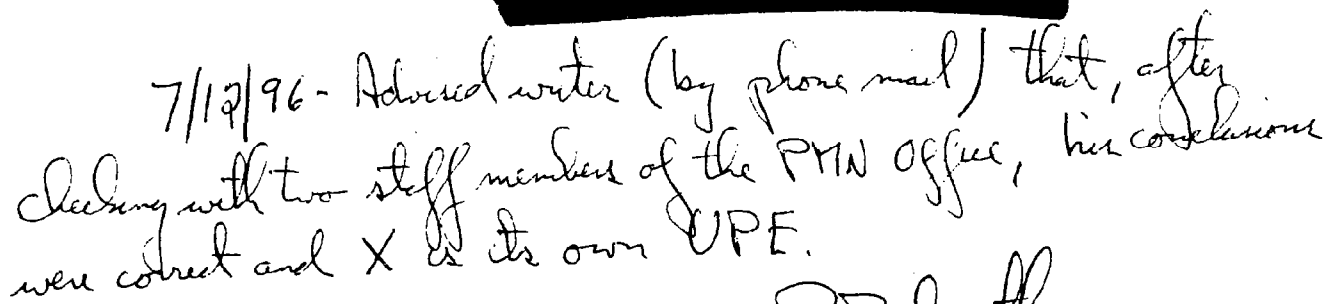 7/12/96 - Advised writer (by phone mail) that, after
checking with two staff members of the PMN Office, his conclusions
were correct and X is its own UPE.